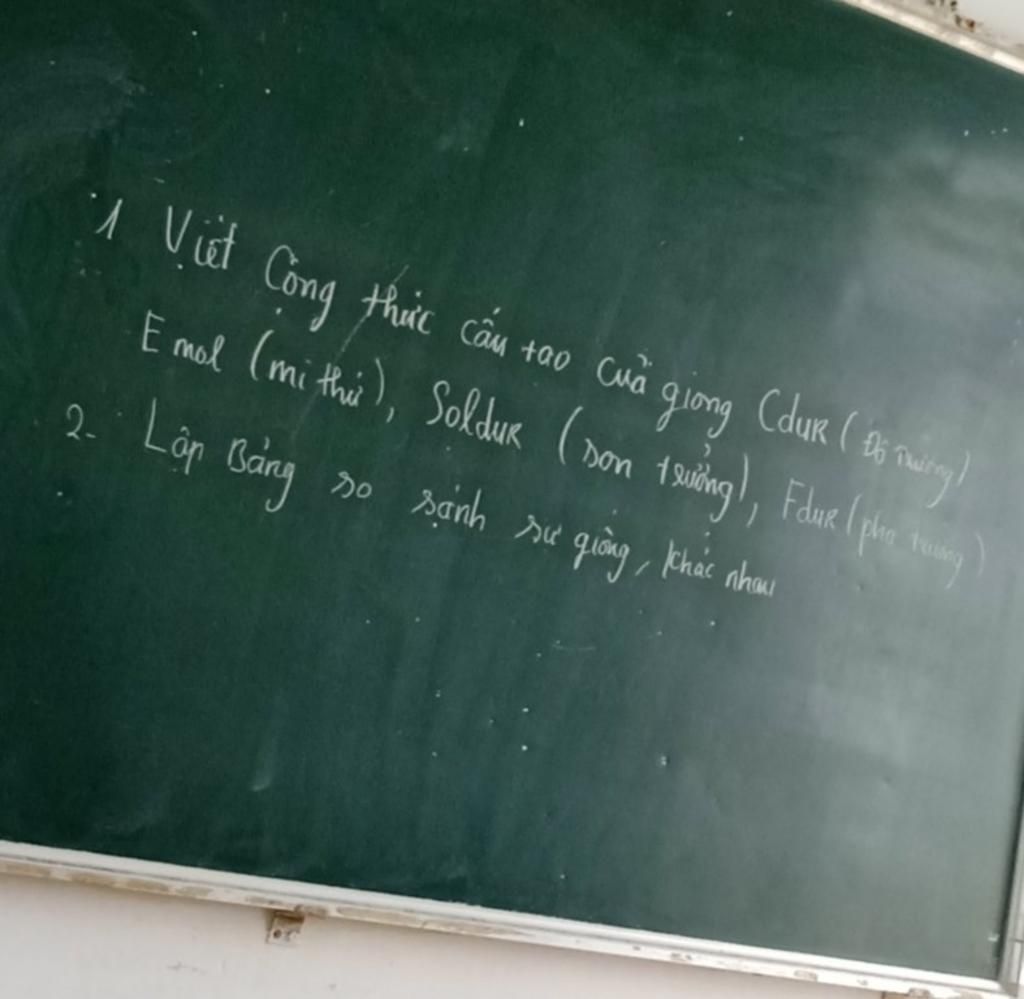 1 Viết Công thức cấu tạo của giọng Cdur (Đô Trưởng)
E mol (mi thứ), Soldur (son trưởng), Fdur (pha trưởng)
2- Lập Bảng so sánh sự giống, khác nhau